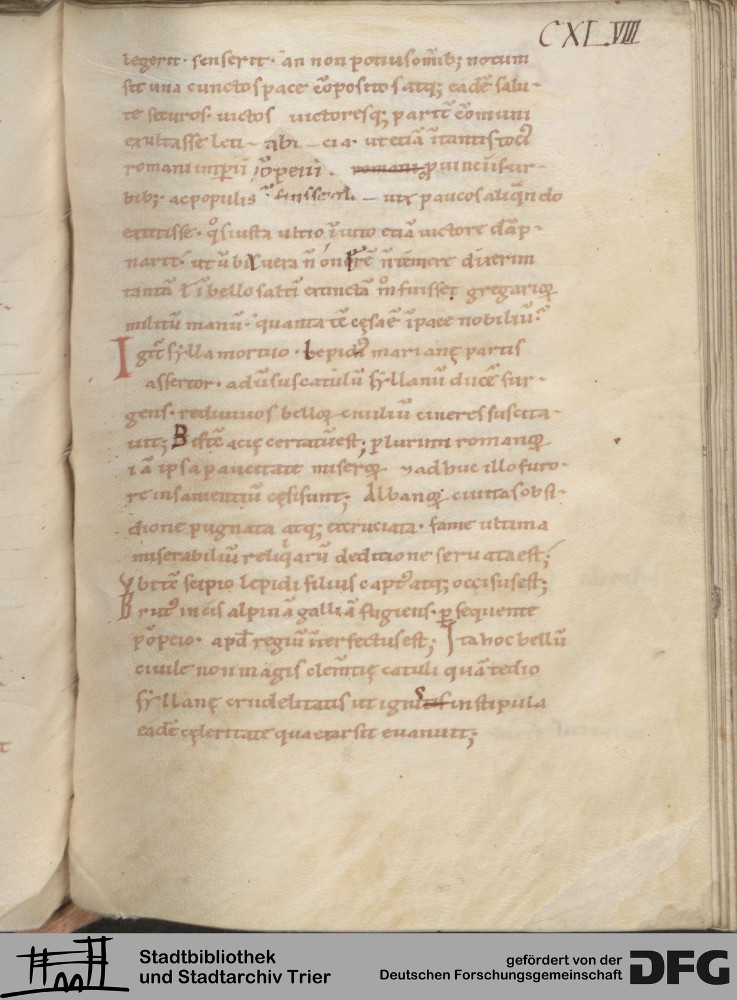 CXLVIII
legerit · senserit · an non potius omib; notum
sit una cunctos pace c̄opositos atq; eadē salu-
te securos · victos victoresq; pariť c̄omuni
exultasse leti
romani imperii pōpeiū · romani ꝓvinciis ur-
bib; ac populis fuisse — vix paucos aliqndo
extitisse · q̊s iusta ultio īvito etiā victore dāp-
narit · ut v̄bi vera n̄ n̄ temere dixerim
tantā ł ī bello saltī extinctā fuisset gregarioꝝ
militū manū · quanta tē cęsaē īpace nobiliū ·
Igiť sylla mortuo · Lepidꝰ marianę partis
assertor · adūsus catulū syllanū ducē sur-
gens · redivivos belloꝝ civiliū cineres suscita-
vit; Bis tē acię certatū est; plurimi romanoꝝ
iā ipsa paucitate miseroꝝ & adhuc illo furo-
re insanientiū cęsi sunt; Albanoꝝ civitas obsi-
dione pugnata atq; excruciata · fame ultima
miserabiliū reliq̇arū deditione servata est;
Vbi tē scipio lepidi filius captꝰ atq; occisus est;
Brutꝰ in cisalpinā galliā fugiens · ꝑsequente
pōpeio · apđ regiū īterfectus est; Ita hoc bellū
civile non magis clemītię catuli quā tedio
syllanę crudelitatis ut ignis in stipula
eadē cęleritate qua exarsit evanuit;
Stadtbibliothek
und Stadtarchiv Trier
gefördert von der
Deutschen Forschungsgemeinschaft
DFG